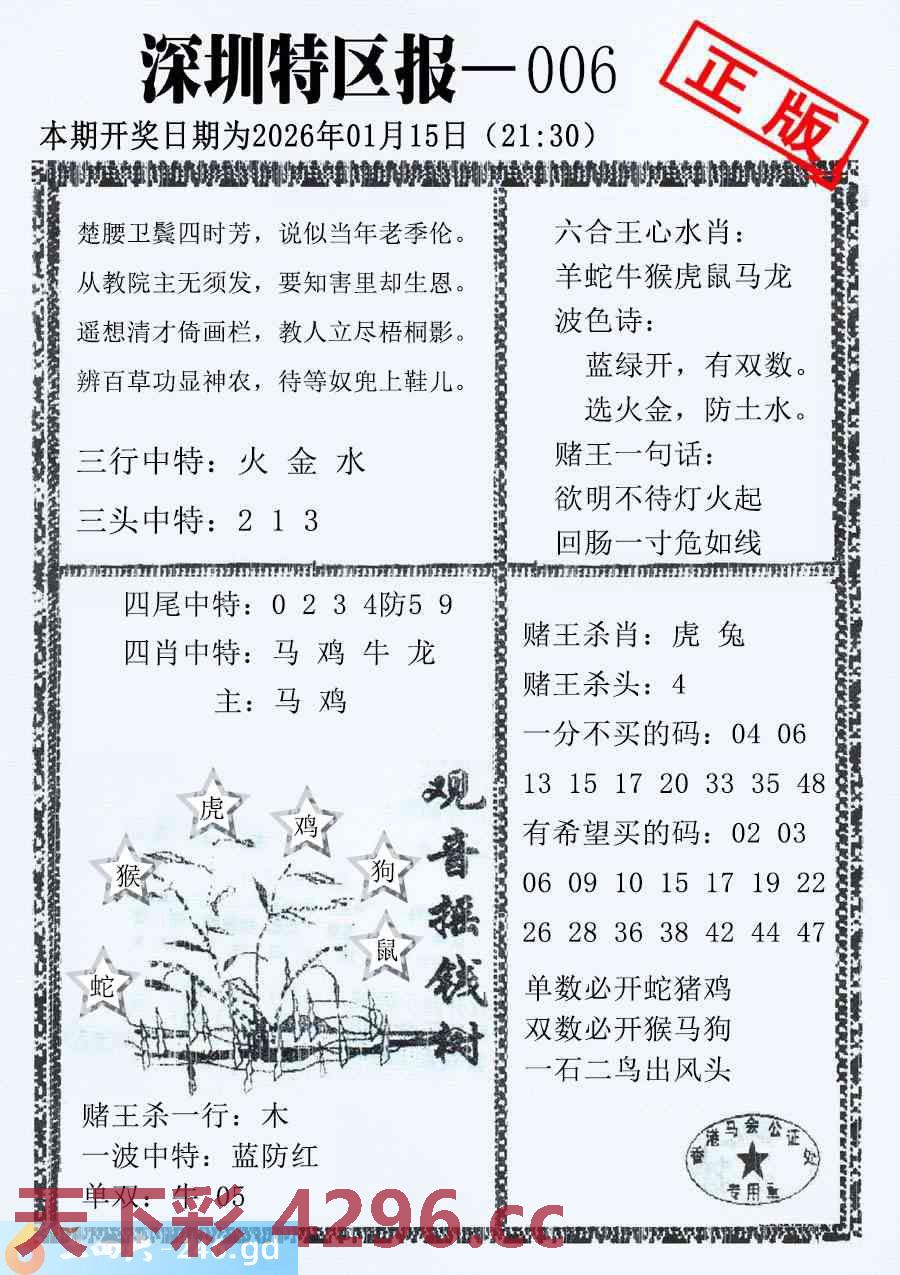 深圳特区报—006
正版
本期开奖日期为2026年01月15日（21:30）
楚腰卫鬓四时芳，说似当年老季伦。
从教院主无须发，要知害里却生恩。
遥想清才倚画栏，教人立尽梧桐影。
辨百草功显神农，待等奴兜上鞋儿。
三行中特：火 金 水
三头中特：2 1 3
六合王心水肖：
羊蛇牛猴虎鼠马龙
波色诗：
蓝绿开，有双数。
选火金，防土水。
赌王一句话：
欲明不待灯火起
回肠一寸危如线
四尾中特：0 2 3 4防5 9
四肖中特：马 鸡 牛 龙
主：马 鸡
虎
鸡
猴
狗
鼠
蛇
观音摇钱树
赌王杀一行：木
一波中特：蓝防红
单双：牛 05
赌王杀肖：虎 兔
赌王杀头：4
一分不买的码：04 06
13 15 17 20 33 35 48
有希望买的码：02 03
06 09 10 15 17 19 22
26 28 36 38 42 44 47
单数必开蛇猪鸡
双数必开猴马狗
一石二鸟出风头
香港马会公证处
专用章
天下彩4296.cc